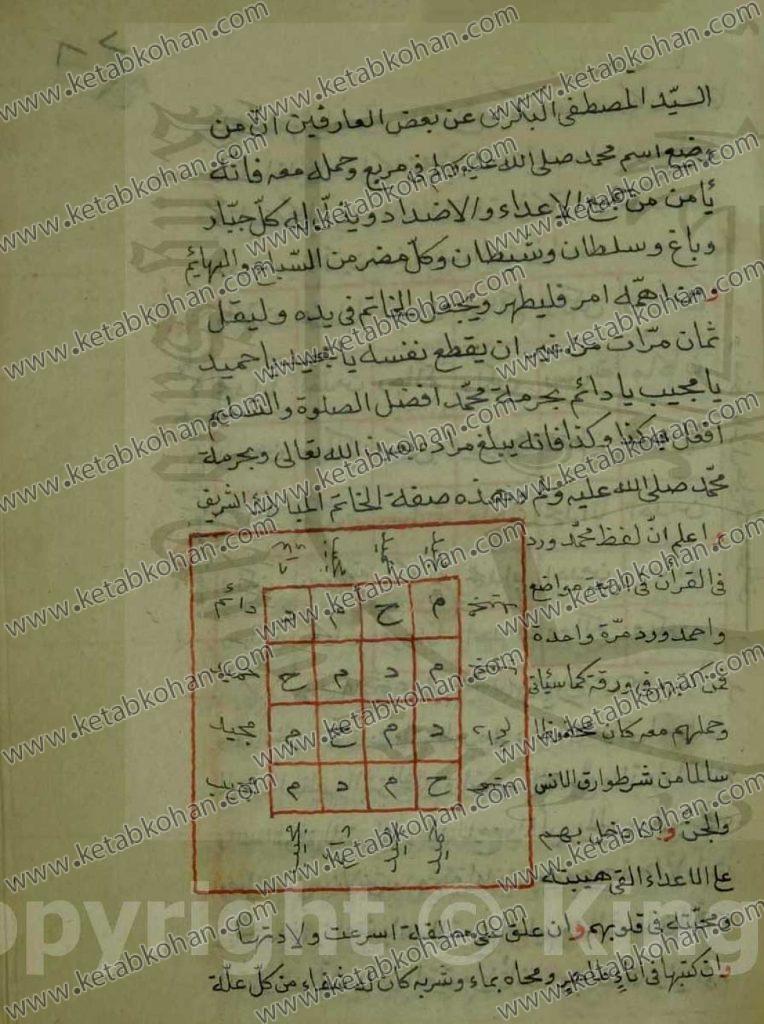 السيّد المصطفى البكرى عن بعض العارفين انّ من
وضع اسم محمد صلى الله عليه وسلم فى مربع وحمله معه فانّه
يأمن من جميع الاعداء والاضداد ويذلّ له كلّ جبّار
وباغ وسلطان وشيطان وكلّ مضر من السّباع والبهائم
ومن اهمّه امر فليطهر ويجعل الخاتم فى يده وليقل
ثمان مرّات من غير ان يقطع نفسه يا مجيد يا حميد
يا مجيب يا دائم بحرمة محمّد افضل الصلوة والسّلام
افعل لى كذا وكذا فانه يبلغ مراده باذن الله تعالى وبحرمة
محمّد صلى الله عليه وسلم وهذه صفة الخاتم المبارك الشريف
و اعلم انّ لفظ محمّد ورد
فى القرأن فى اربعة مواضع
واحمد ورد مرّة واحدة
فمن كتبهم فى ورقة كما سيأتى
وحملهم معه كان محفوظا
سالما من شر طوارق الانس
والجن وان دخل بهم
على الاعداء القى هيبته
ومحبّته فى قلوبهم وان علق على مطلقة اسرعت ولادتها
وان كتبها فى اناء طاهر ومحاه بماء وشربه كان له شفاء من كلّ علّة
م ح م د
دائم
م د م ح
حميد
د م ح م
مجيد
ح م د م
مجيب
www.ketabkohan.com
opyright © King